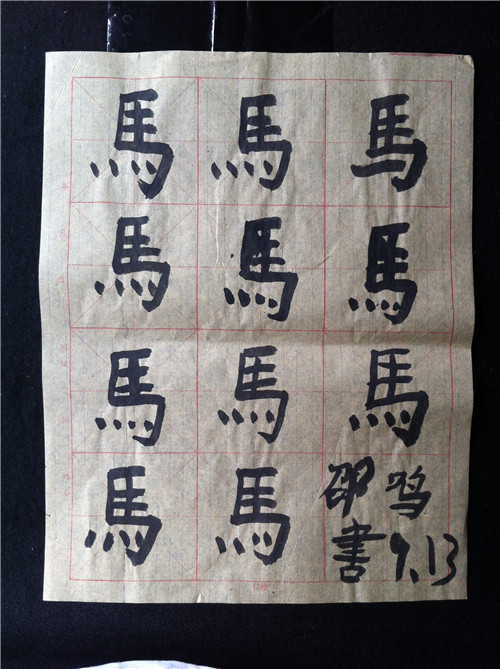 馬 馬 馬
馬 馬 馬
馬 馬 馬
馬 馬
邵 鸣
書 9.13